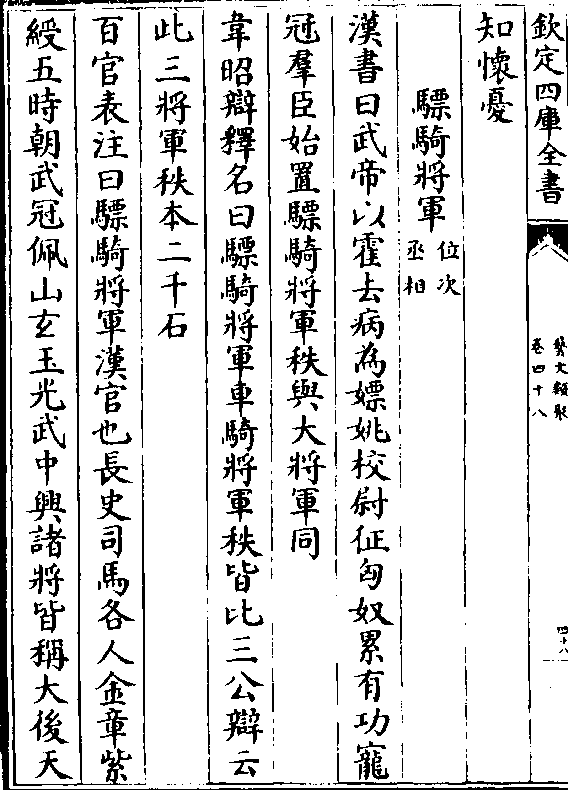 欽定四庫全書
藝文類聚
卷四十八
四十八
知懷憂
驃騎將軍
位次
丞相
漢書曰武帝以霍去病為嫖姚校尉征匈奴累有功寵
冠羣臣始置驃騎將軍秩與大將軍同
韋昭辯釋名曰驃騎將軍車騎將軍秩皆比三公辯云
此三將軍秩本二千石
百官表注曰驃騎將軍漢官也長史司馬各人金章紫
綬五時朝武冠佩山玄玉光武中興諸將皆稱大後天